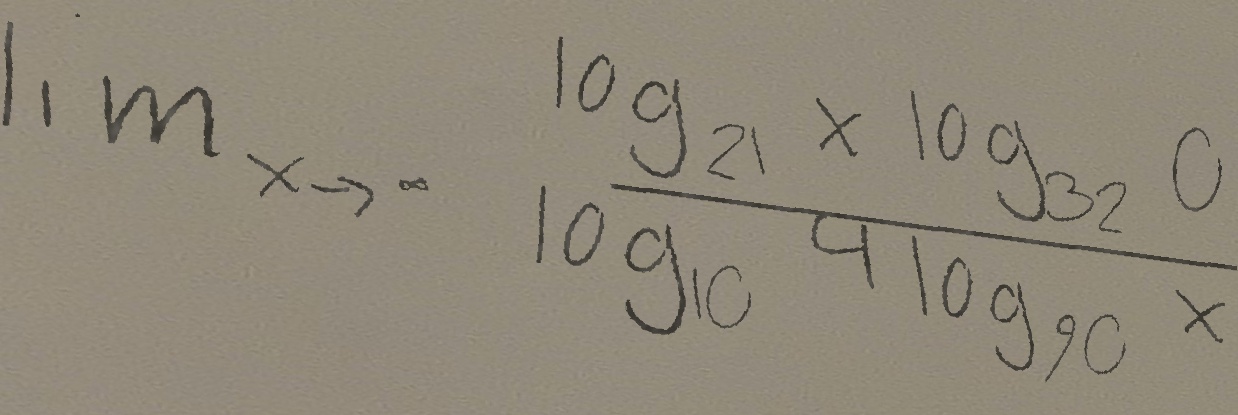 lim x→∞ log21 x log32 0
log10 9 log90 x